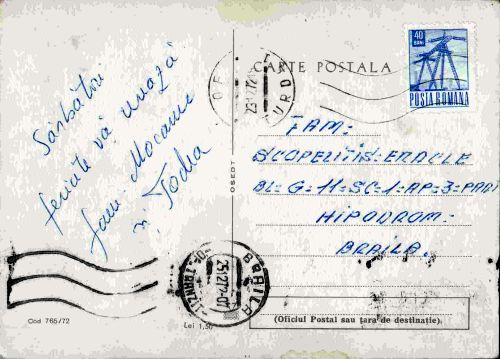 Sărbători
fericite vă urează
fam. Mocanu
CARTE POSTALA
40
BANI
POSTA ROMANA
FAM:
SCOPELITIS=ERACLE
BL=G=11=SC=1=AP=3=PAR
HIPODROM=
BRAILA=
BRAILA
OSEDT
Cod 765/72
Lei 1,50
(Oficiul Postal sau țara de destinație).